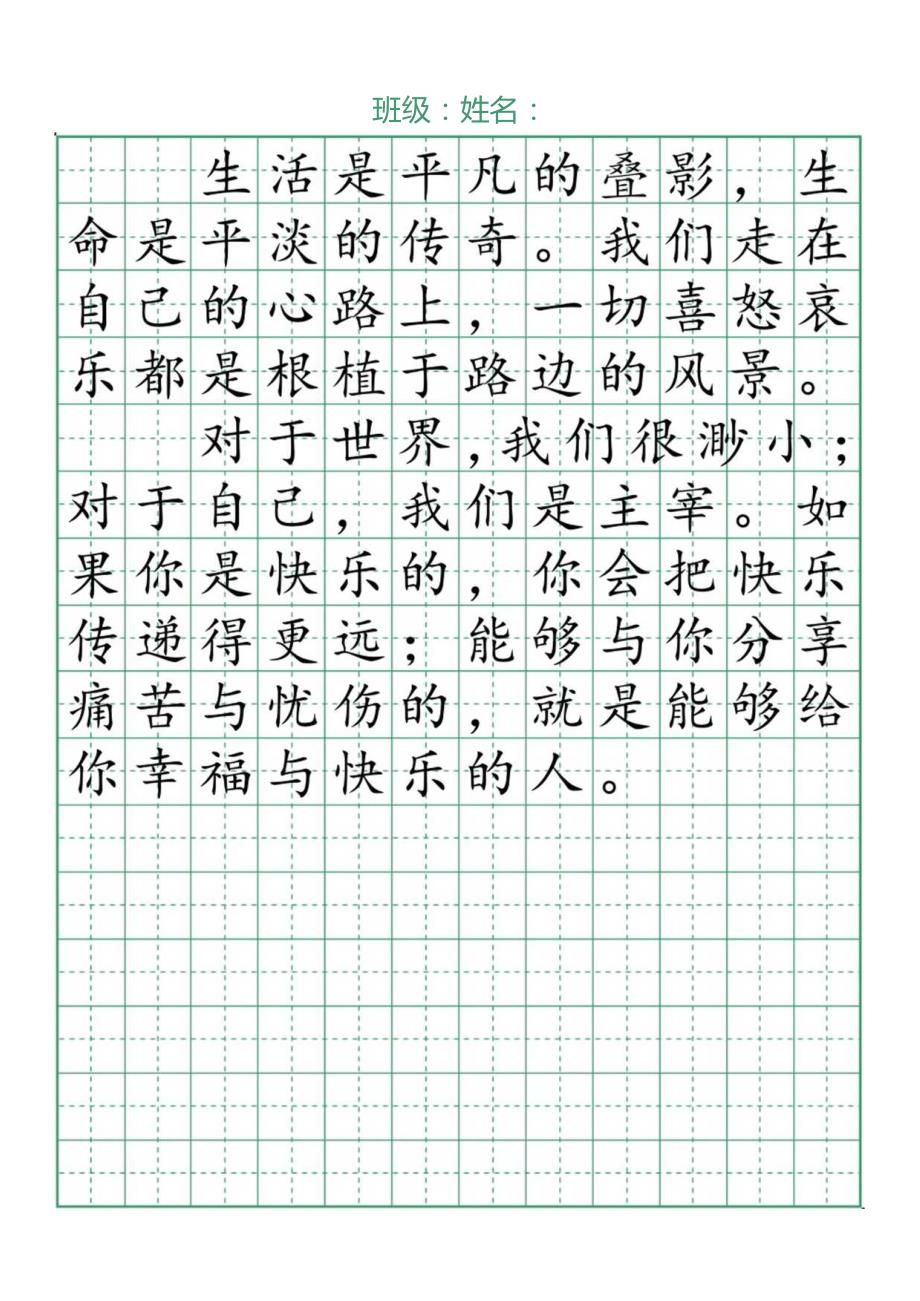 班级：姓名：
生活是平凡的叠影，生
命是平淡的传奇。我们走在
自己的心路上，一切喜怒哀
乐都是根植于路边的风景。
对于世界，我们很渺小；
对于自己，我们是主宰。如
果你是快乐的，你会把快乐
传递得更远；能够与你分享
痛苦与忧伤的，就是能够给
你幸福与快乐的人。